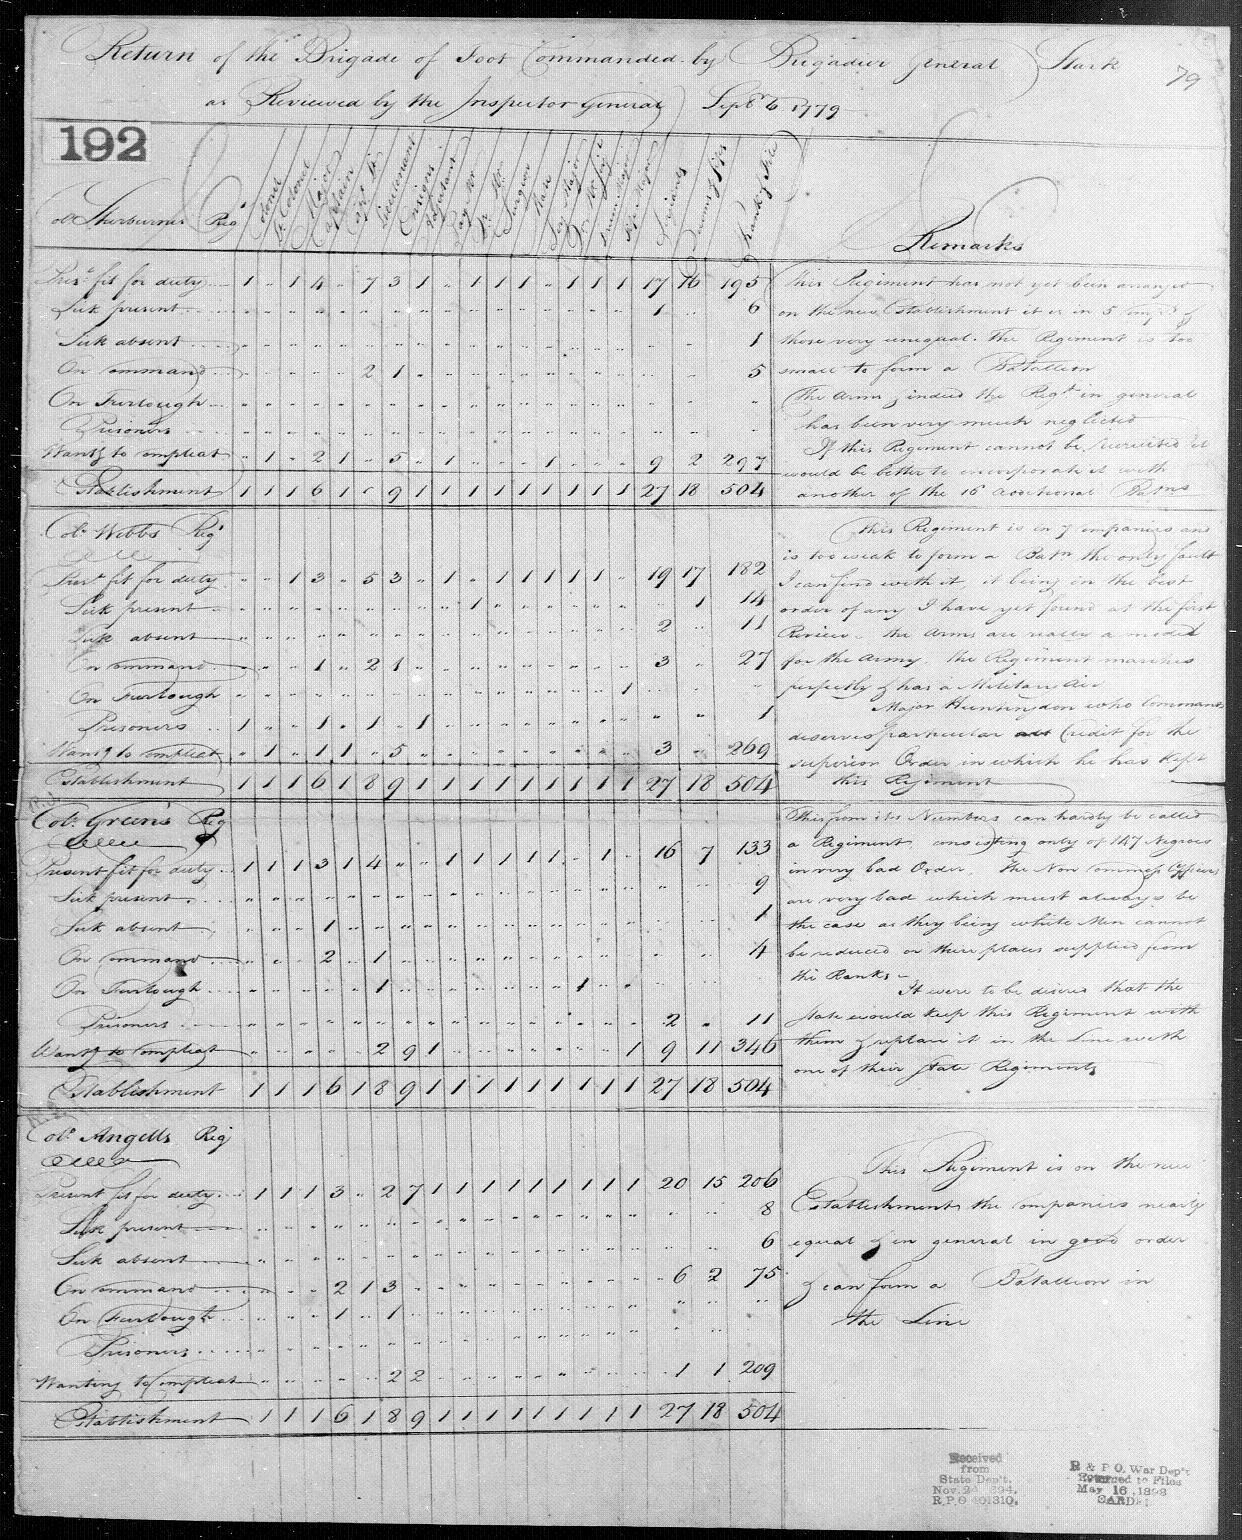 Return of the Brigade of Foot Commanded by Brigadier General Stark
79
as Reviewed by the Inspector General Sept 6 1779
192
Col. Sherburnes Reg.t
Colonel
Lt. Colonel
Major
Captain
Capt. Lt.
Lieutenant
Ensigns
Adjutant
Pay Mr
Qr. Mr.
Surgeon
Mate
Serj. Major
Qr. Mr. Serjt
Drum Major
Fife Major
Serjeants
Drums & fifes
Rank & File
Remarks
Pres.t fit for duty 1 " 1 4 " 7 3 1 " 1 1 1 " 1 1 1 17 16 195
Sick present 1 " 6
Sick absent 1
On Command 2 1 5
On Furlough
Prisoners
Want.g to Compleat " 1 " 2 1 " 5 " 1 " " " 1 " " " 9 2 297
Establishment 1 1 1 6 1 8 9 1 1 1 1 1 1 1 1 1 27 18 504
This Regiment has not yet been arranged
on the new Establishment it is in 5 Comp.s &
those very unequal. The Regiment is too
small to form a Batallion
The Arms & indeed the Reg.t in general
has been very much neglected
If this Regiment cannot be recruited it
would be better to incorporate it with
another of the 16 Additional Batns
Col. Webbs Reg.t
Pres.t fit for duty " " 1 3 " 5 3 " 1 " 1 1 1 1 1 " 19 17 182
Sick present 1 1 14
Sick absent 2 " 11
On Command 1 " 2 1 3 " 27
On Furlough 1
Prisoners 1 " " 1 " 1 " 1 " " 1
Want.g to Compleat " 1 " 1 1 " 5 3 " 269
Establishment 1 1 1 6 1 8 9 1 1 1 1 1 1 1 1 1 27 18 504
This Regiment is in 7 companies and
is too weak to form a Batn the only fault
I can find with it, it being in the best
order of any I have yet found at the first
Review. the Arms are really a model
for the Army. The Regiment marches
perfectly & has a Military Air
Major Huntingdon who Commands
deserves particular Credit for the
superior Order in which he has kept
this Regiment
R.I.
Col. Greens Reg
Present fit for duty 1 1 1 3 1 4 " " 1 1 1 1 1 " 1 " 16 7 133
Sick present 9
Sick absent 1 1
On Command 2 " 1 4
On Furlough 1 1
Prisoners 2 " 11
Want.g to Compleat 2 9 1 1 9 11 346
Establishment 1 1 1 6 1 8 9 1 1 1 1 1 1 1 1 1 27 18 504
This from its Numbers can hardly be called
a Regiment consisting only of 147 Negroes
in very bad Order. The Non Commiss. Officers
are very bad which must always be
the case as they being white Men cannot
be reduced or their places supplied from
the Ranks
It were to be desired that the
State would keep this Regiment with
them & replace it in the Line with
one of their State Regiments
R.I.
Col. Angells Reg
Present fit for duty 1 1 1 3 " 2 7 1 1 1 1 1 1 1 1 1 20 15 206
Sick present 8
Sick absent 6
On Command 2 1 3 6 2 75
On Furlough 1 " 1
Prisoners
Wanting to Compleat 2 2 1 1 209
Establishment 1 1 1 6 1 8 9 1 1 1 1 1 1 1 1 1 27 18 504
This Regiment is on the new
Establishment, the companies nearly
equal & in general in good order
& can form a Batallion in
the Line
Received
from
State Dep't.
Nov. 24 1894.
R.P.O 401310.
R & P O. War Dep't
Returned to Files
May 16, 1898